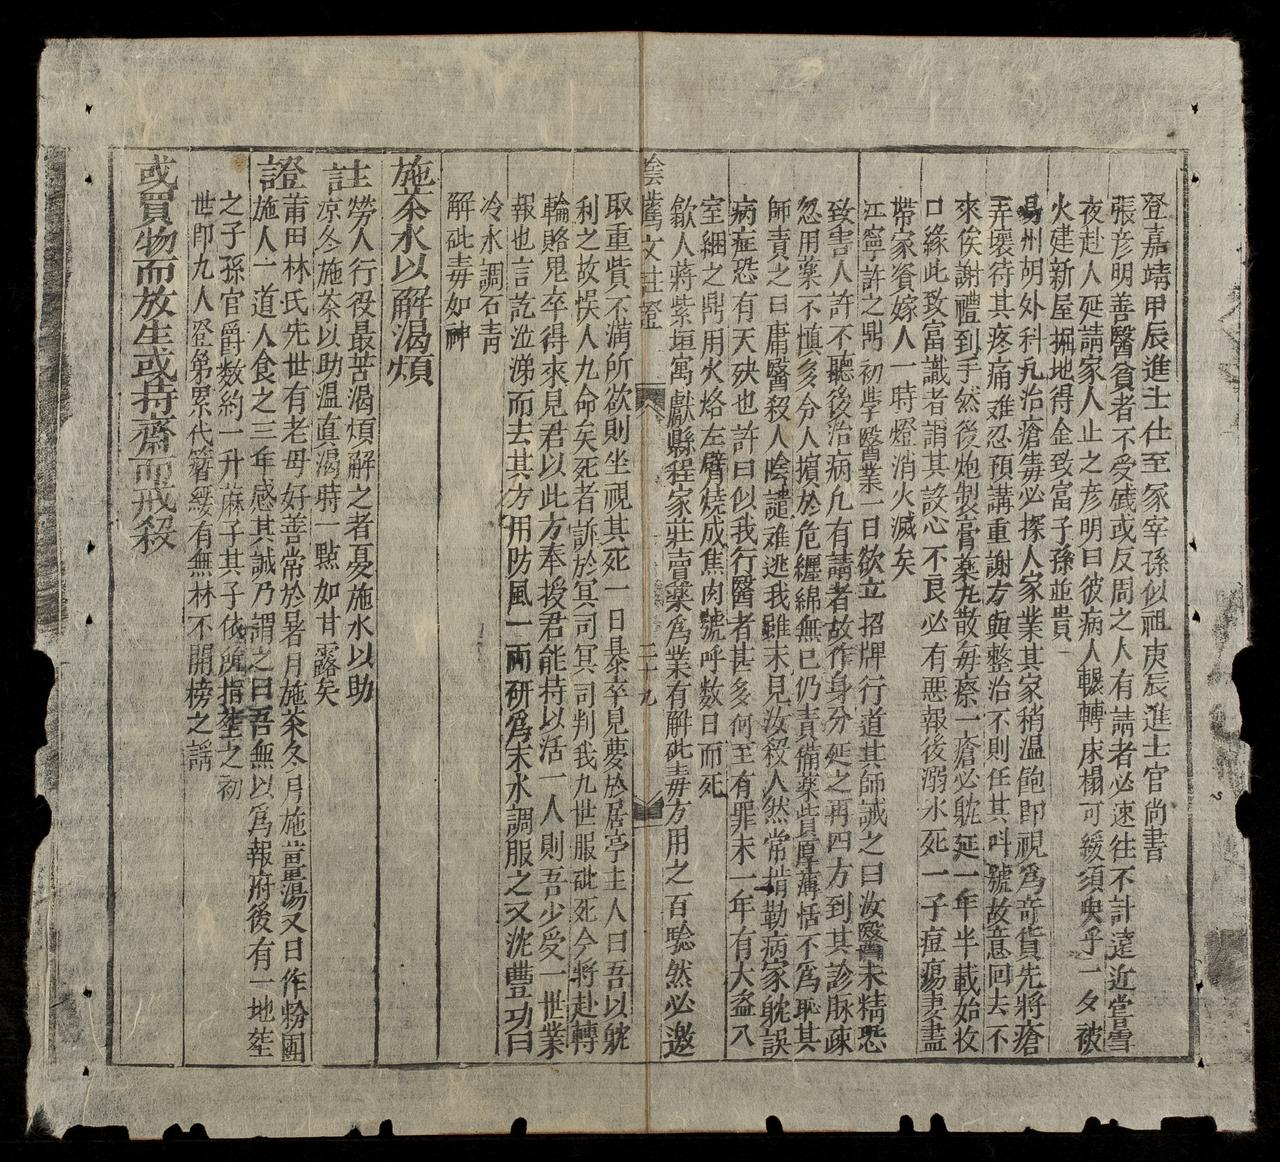 登嘉靖甲辰進士仕至冢宰孫似祖庚辰進士官尚書
張彥明善醫貧者不受錢或反周之人有請者必速往不計遠近嘗雪
夜赴人延請家人止之彥明曰彼病人輾轉床榻可緩須臾乎一夕被
火建新屋掘地得金致富子孫並貴
易州胡外科凡治瘡毒必探人家業其家稍溫飽即視為奇貨先將瘡
弄壞待其疼痛难忍預講重謝方與整治不則任其呌號故意回去不
來俟謝禮到手然後炮製膏藥丸散每療一瘡必躭延一年半載始收
口緣此致富識者謂其設心不良必有悪報後溺水死一子痘瘍妻盡
帶家資嫁人一時燈消火滅矣
江寧許之鼎初學醫業一日欲立招牌行道其師誡之曰汝醫未精恐
致害人許不聽後治病凡有請者故作身分延之再四方到其診脉疎
忽用藥不慎多令人擯於危纒綿無已仍責備藥貲厚薄恬不為恥其
師責之曰庸醫殺人陰譴难逃我雖未見汝殺人然常掯勒病家躭誤
病症恐有天殃也許曰似我行醫者甚多何至有罪未一年有大盗入
室綑之鼎用火烙左臂燒成焦肉號呼数日而死
歙人蔣紫垣寓獻縣程家莊賣藥為業有解砒毒方用之百驗然必邀
陰隲文註證
二十九
取重貲不滿所欲則坐視其死一日暴卒見夢於居亭主人曰吾以躭
利之故悮人九命矣死者訴於冥司冥司判我九世服砒死今將赴轉
輪賂鬼卒得來見君以此方奉授君能持以活一人則吾少受一世業
報也言訖泣涕而去其方用防風一兩研為末水調服之又沈豊功曰
冷水調石青
解砒毒如神
施茶水以解渴煩
註
勞人行役最苦渴煩解之者夏施水以助
凉冬施茶以助温真渴時一點如甘露矣
證
莆田林氏先世有老母好善常於暑月施茶冬月施薑湯又日作粉團
施人一道人食之三年感其誠乃謂之曰吾無以為報府後有一地塟
之子孫官爵数約一升蔴子其子依所指塟之初
世即九人登第累代簪纓有無林不開榜之謡
或買物而放生或持齋而戒殺